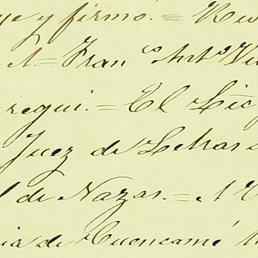 ye y firmó. = Ru
= A = Franco Anto Vi
regui. = El Lic
Juez de Letras
l de Nazas. = A
ia de Cuencamé